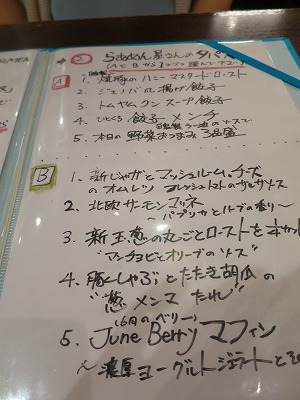 (AとBから1つずつ選んで下さい)
A
1. 焼豚のハニーマスタードロースト
2. ジェノバ風揚げ餃子
3. トムヤムクンスープ餃子
4. ひとくち餃子メンチ
5. 本日の野菜おつまみ3品盛
B
1. 新じゃがとマッシュルーム、チーズ
のオムレツ
2. 北欧サーモンマリネ
〜パプリカとハーブの香り〜
3. 新玉葱の丸ごとローストを1/4カット
"アンチョビとオリーブのソース"
4. 豚しゃぶとたたき胡瓜の
"葱メンマたれ"
(6月のベリー)
5. June Berry マフィン
〜濃厚ヨーグルトジェラートと